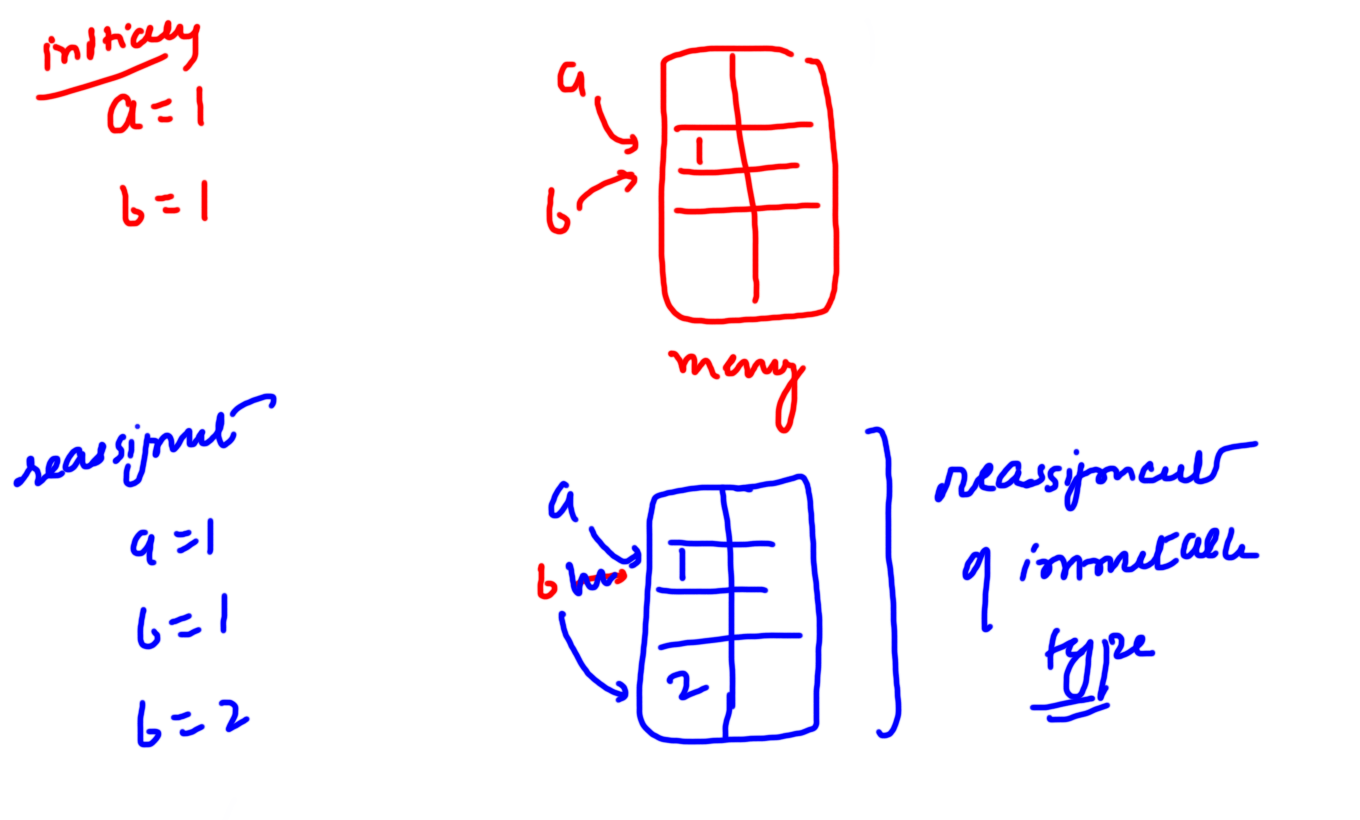 initially
a = 1
b = 1
a
b
1
memory
reassignment
a = 1
b = 1
b = 2
a
b
1
2
reassignment
of immutable
type